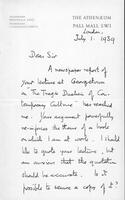 THE ATHENÆUM
PALL MALL SW1
London.
July 1. 1989
Dear Sir
A newspaper report of
your lecture at Georgetown
on "The Tragic Dualism of Con-
temporary Culture" has reached
me. Your argument powerfully
re-inforces the theme of a book
on which I am at work. I should
like to quote your lecture, but
am anxious that the quotation
should be accurate. Is it
possible to secure a copy of it?